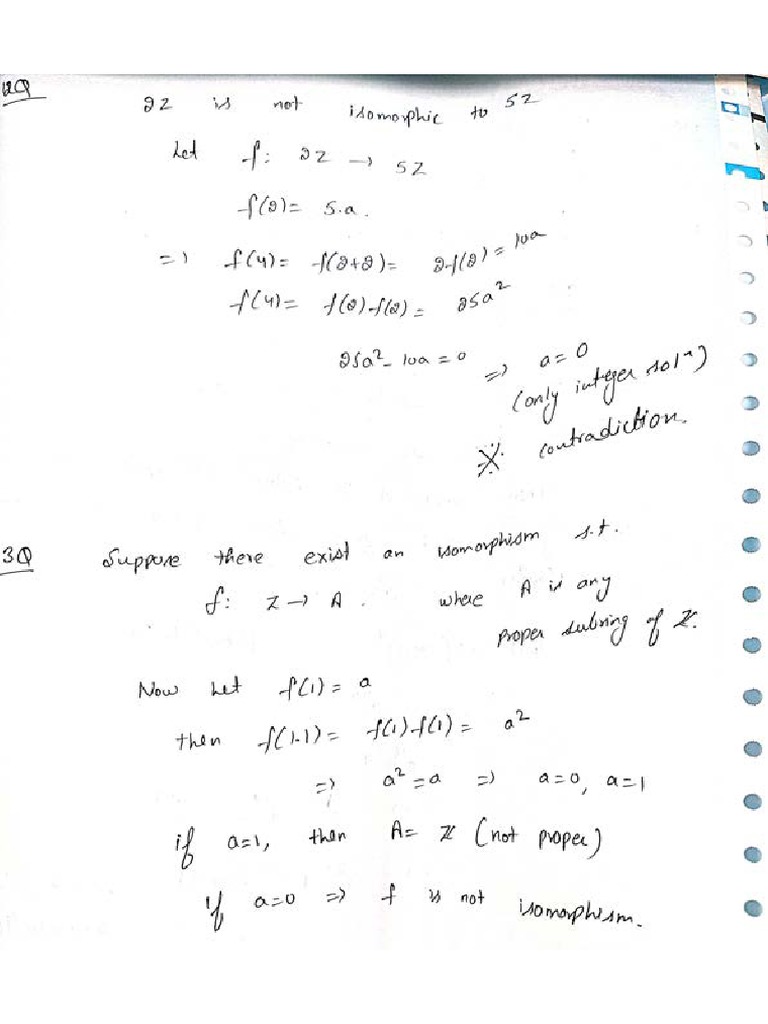 2Q
2Z is not isomorphic to 5Z
Let f: 2Z → 5Z
f(2) = 5.a.
=) f(4) = f(2+2) = 2f(2) = 10a
f(4) = f(2)f(2) = 25a²
25a² - 10a = 0 =) a = 0
(only integer solⁿ)
contradiction.
3Q Suppose there exist an isomorphism s.t.
f: Z → A. where A is any
proper subring of Z.
Now Let f(1) = a
then f(1.1) = f(1)f(1) = a²
=) a² = a =) a=0, a=1
if a=1, then A = Z (not proper)
if a=0 =) f is not isomorphism.